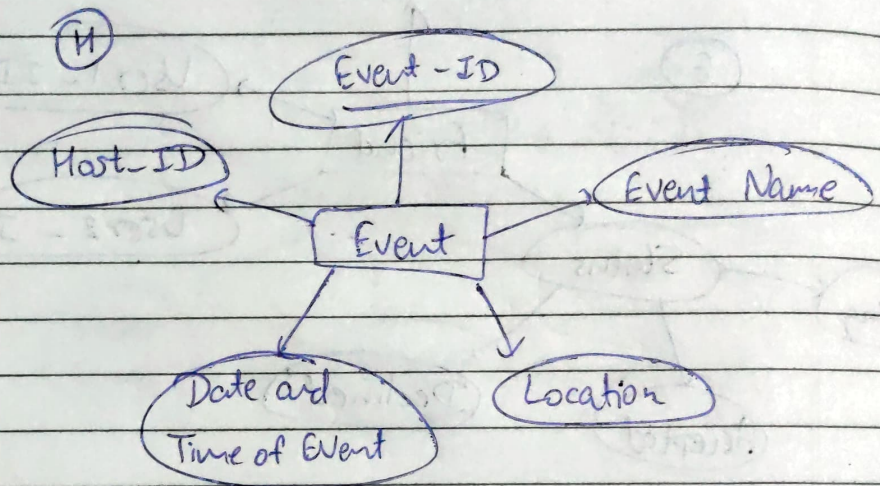 H
Event-ID
Host-ID
Event Name
Event
Date and
Time of Event
Location